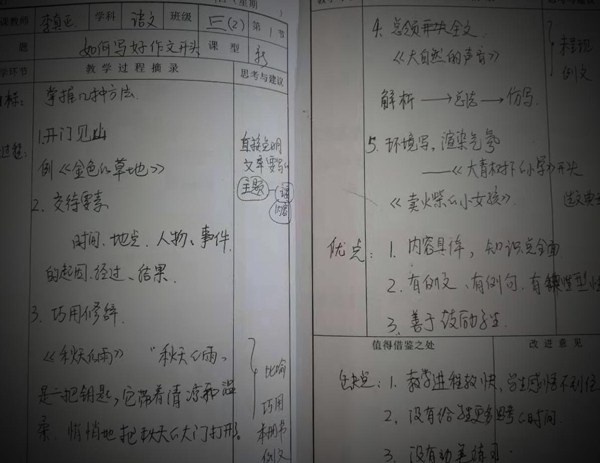 学科 语文 班级 三(2) 第1节
题 如何写好作文开头 课型 新
教学过程摘录 思考与建议
掌握几种方法.
1.开门见山
例《金色的草地》
直接点明
文章要写的
主题
2.交待要素
时间、地点、人物、事件
的起因、经过、结果.
3.巧用修辞.
《秋天的雨》 "秋天的雨,
是一把钥匙,它带着清凉和温
柔,悄悄地把秋天的大门打开.
比喻
巧用
本册书
例文
4.总领开头全文.
《大自然的声音》
例文
解析 → 总结 → 仿写.
5.环境写,渲染气氛
——《大青树下的小学》开头
《卖火柴的小女孩》.
优点:1.内容具体,知识点全面
2.有例文、有例句、有
3.善于鼓励学生
值得借鉴之处 改进意见
缺点:1.教学进程较快,学生感悟不到位
2.没有给学生更多思考的时间.
3.没有动笔练习.